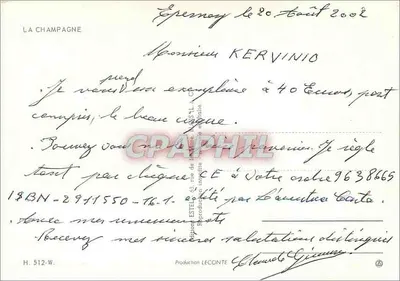 Epernay le 20 Août 2002
LA CHAMPAGNE
Monsieur KERVINIO
prend
. Je vous un exemplaire à 40 Euros, port
compris, le beau
CARTAPHIL
. Pouvez vous me le faire parvenir. Je règle
tout par chèque CE à votre ordre 9638665
ISBN - 2911550-16-1- édité par
. Avec mes remerciements
Recevez mes sincères salutations distinguées
H. 512-W.
Production LECONTE